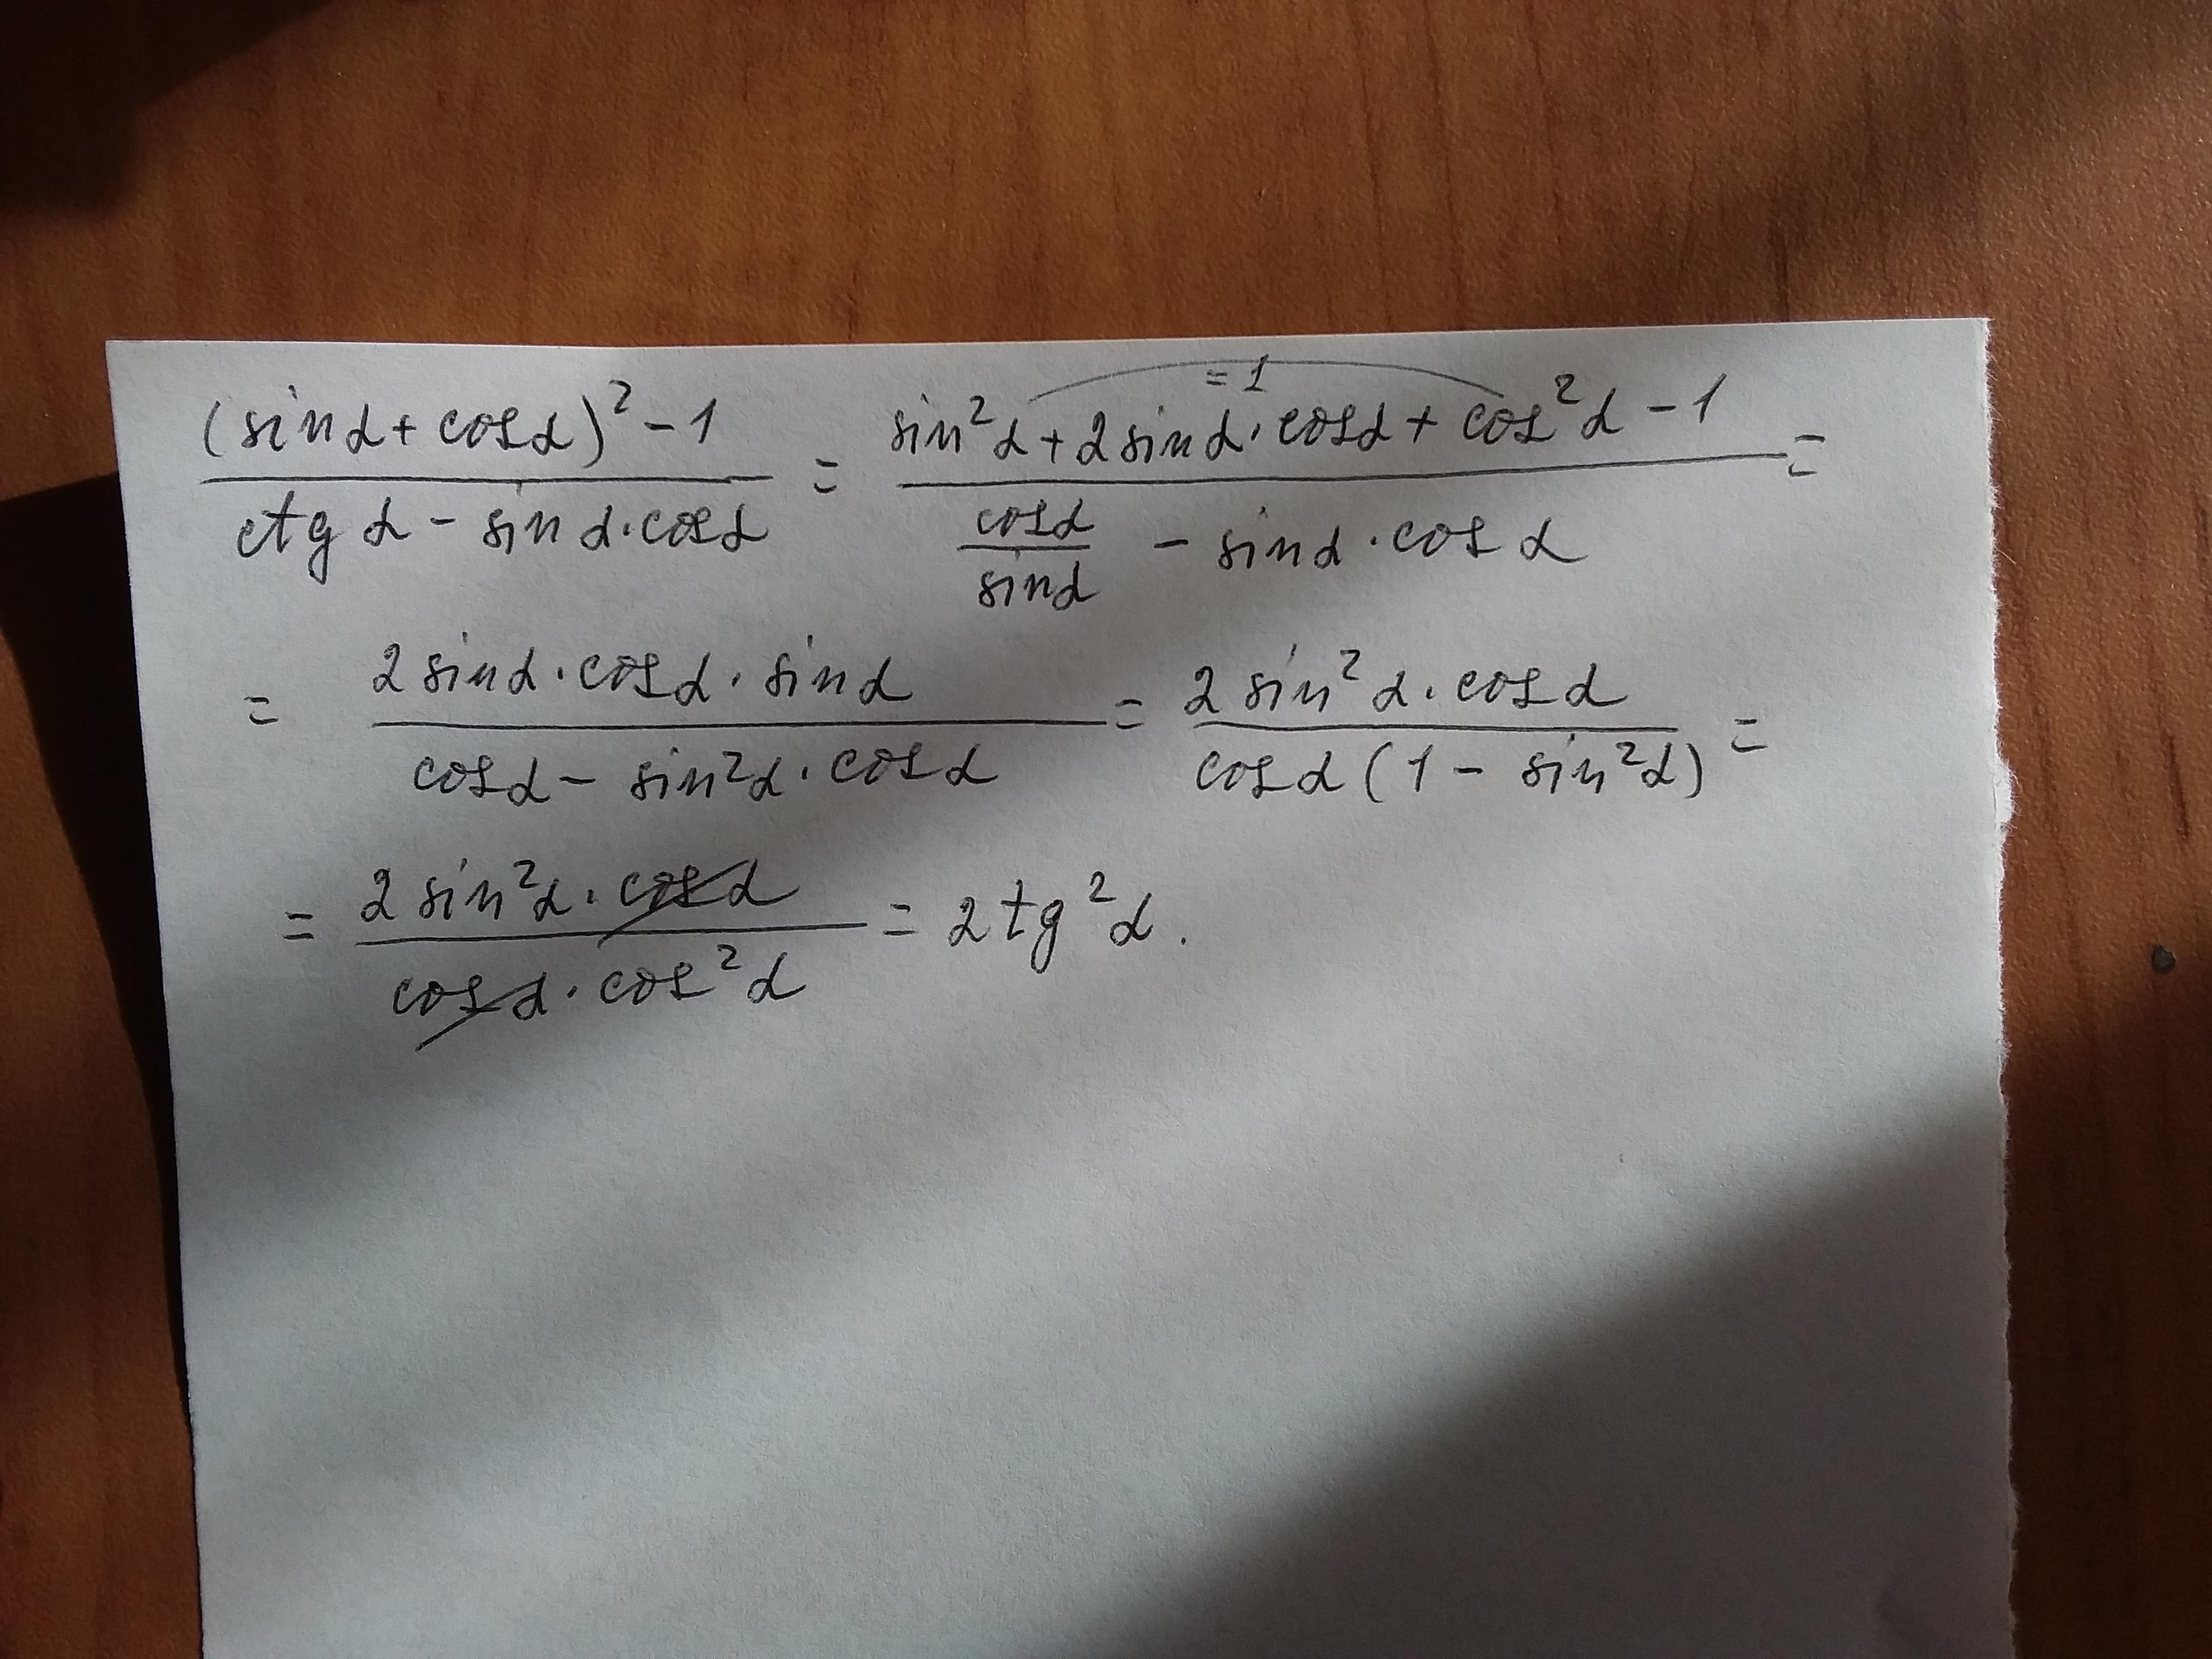 = 1
(sin α + cos α)² − 1 / ctg α − sin α · cos α = sin² α + 2 sin α · cos α + cos² α − 1 / cos α / sin α − sin α · cos α =
= 2 sin α · cos α · sin α / cos α − sin² α · cos α = 2 sin² α · cos α / cos α (1 − sin² α) =
= 2 sin² α · cos α / cos α · cos² α = 2 tg² α.